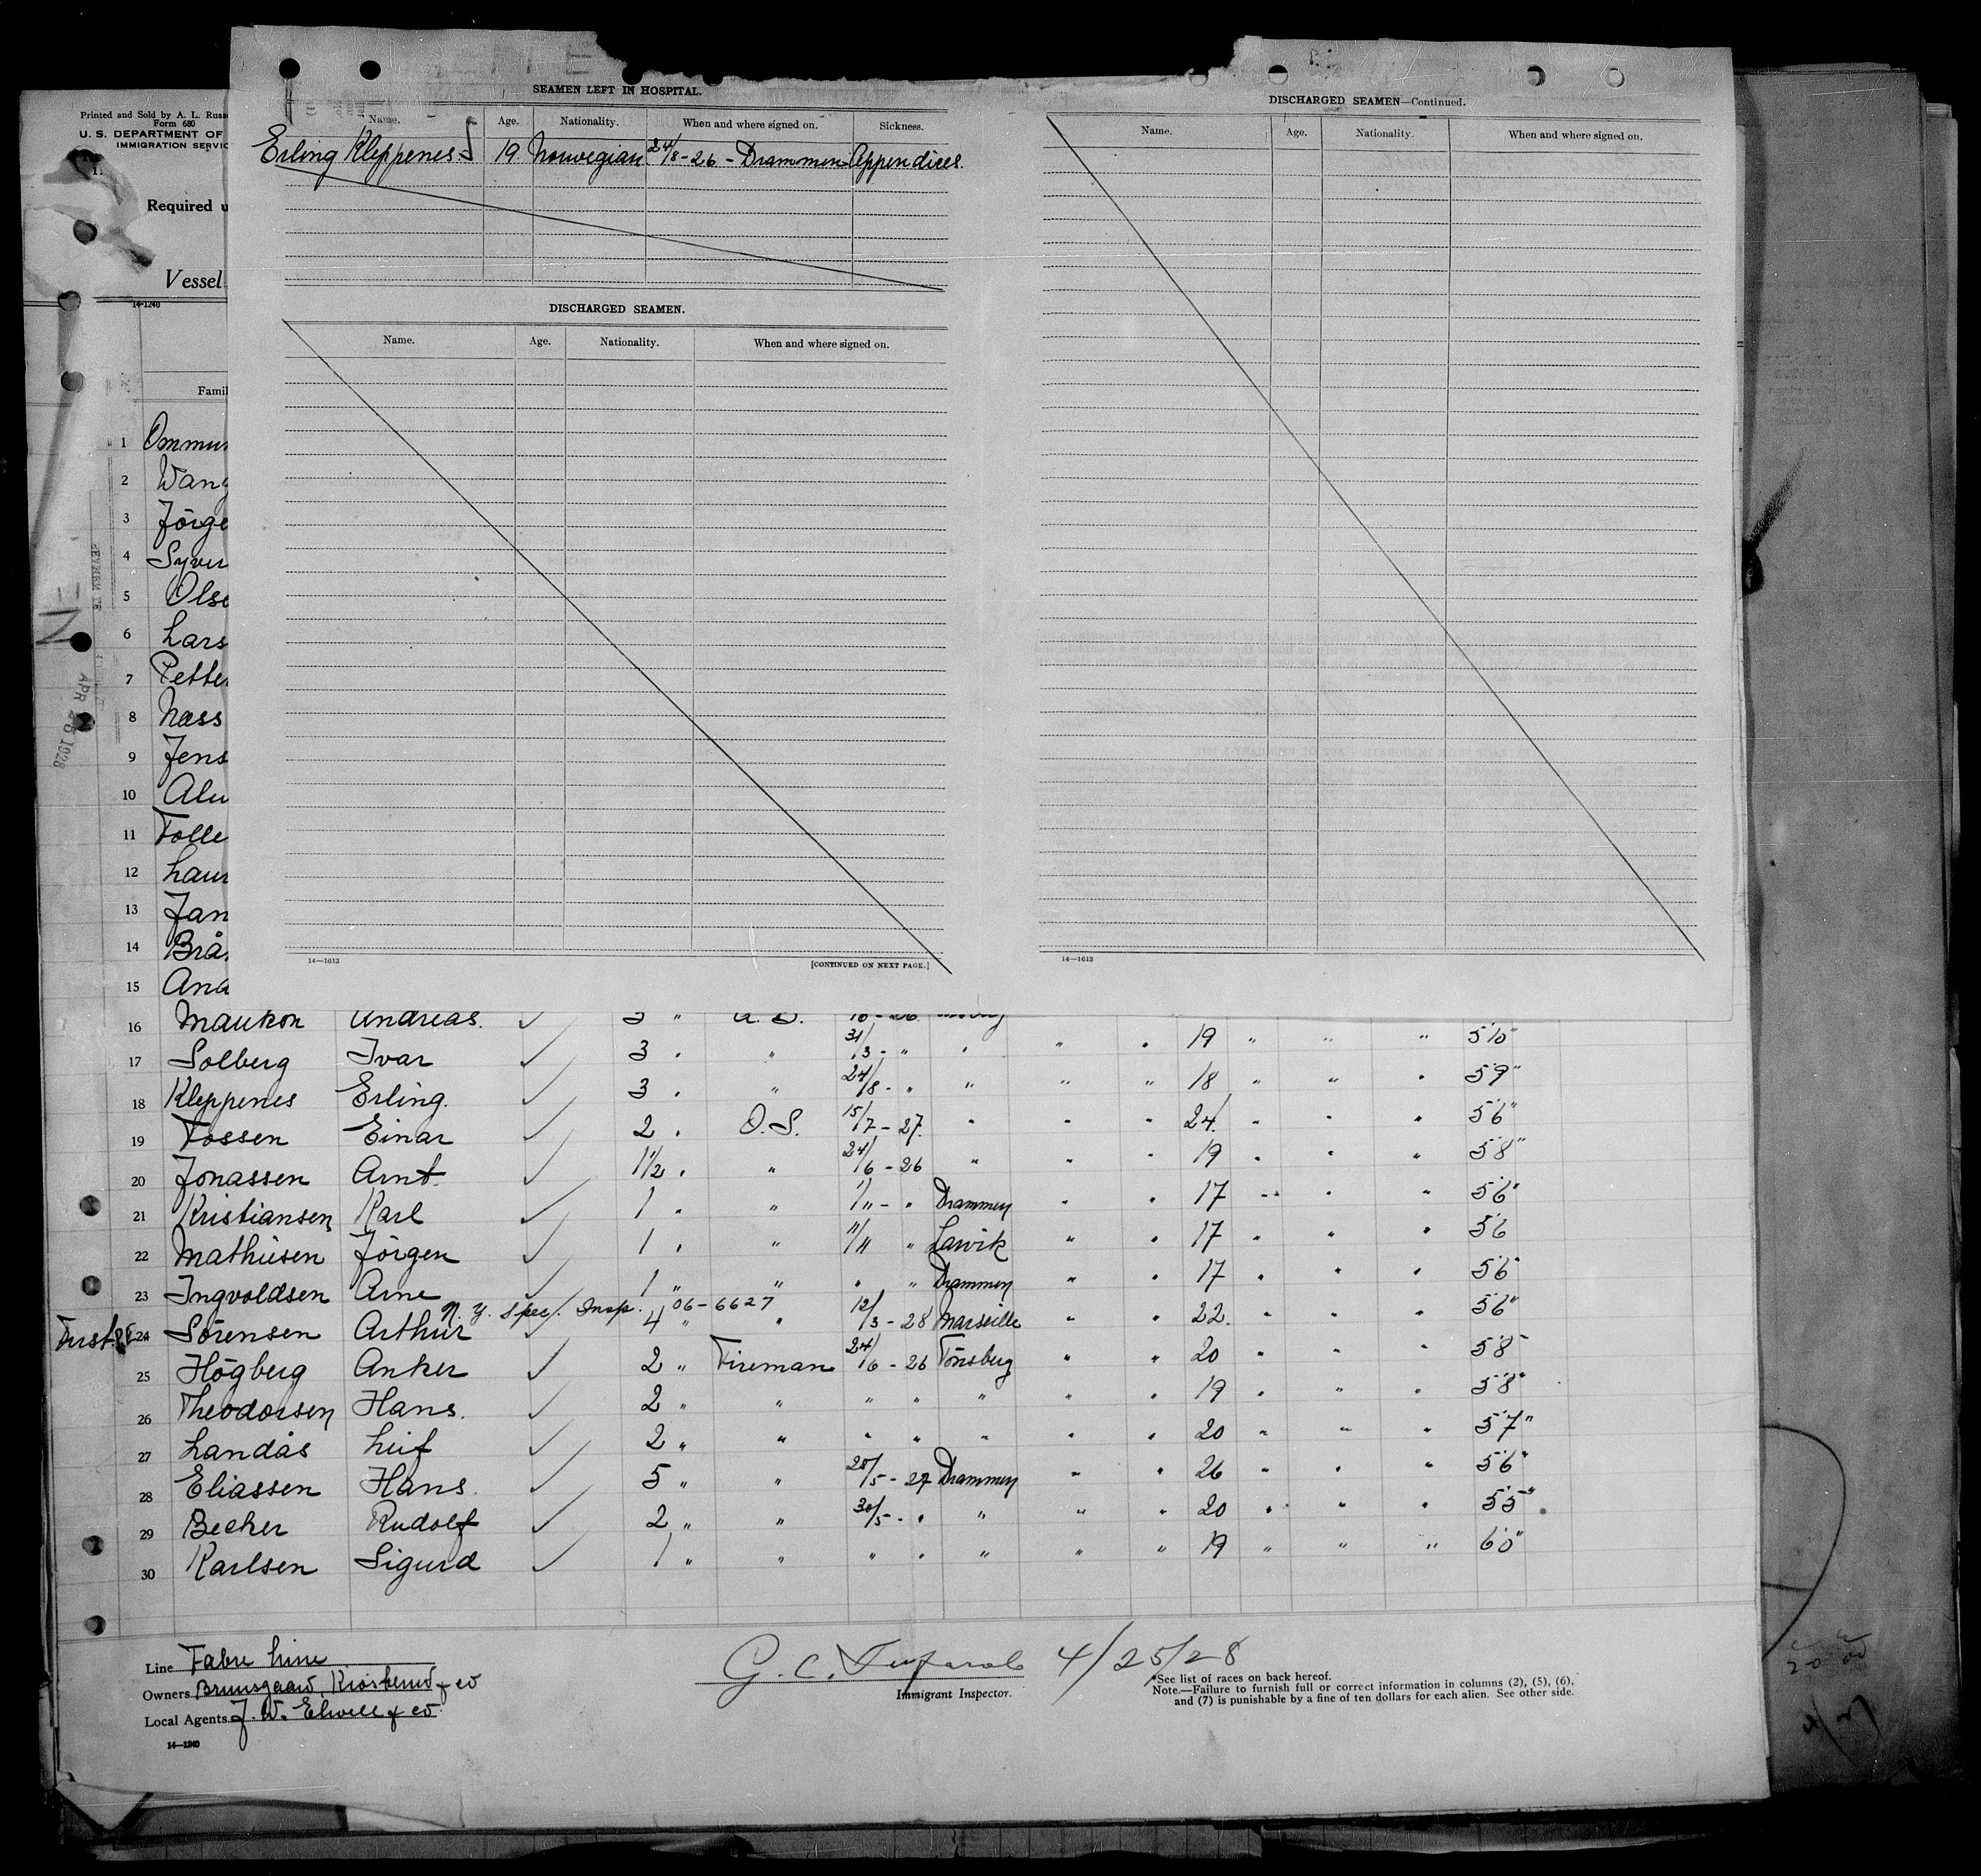 SEAMEN LEFT IN HOSPITAL.
Name. Age. Nationality. When and where signed on. Sickness.
Erling Kleppenes 19 Norwegian 24/8-26 - Drammen Appendices.
DISCHARGED SEAMEN.
Name. Age. Nationality. When and where signed on.
14—1613 [CONTINUED ON NEXT PAGE.]
DISCHARGED SEAMEN—Continued.
Name. Age. Nationality. When and where signed on.
14—1613
Printed and Sold by A. L. Russ
Form 680
U. S. DEPARTMENT OF
IMMIGRATION SERVIC
Required u
Vessel
14-1240
Famil
APR 25 1928
1 Ommun
2 Wang
3 Jörge
4 Syver
5 Olse
6 Lars
7 Petter
8 Næss
9 Jens
10 Alu
11 Tolle
12 Laur
13 Jan
14 Brå
15 And
16 Maukon Andreas. 3 " A. B.
17 Solberg Ivar 3 " " 31/3 - " " " " 19 " " " 5'10"
18 Kleppenes Erling. 3 " " 24/8 - " " " " 18 " " " 5'9"
19 Fossen Einar 2 " O.S. 15/7 - 27. " " " 24. " " " 5'6"
20 Jonassen Arnt 1 1/2 " " 24/6 - 26 " " " 19 " " " 5'8"
21 Kristiansen Karl 1 " " 1/11 - " Drammen " " 17 " " " 5'6"
22 Mathisen Jörgen 1 " " 11/11 " Larvik " " 17 " " " 5'6
23 Ingvoldsen Arne 1 " " " " Drammen " " 17 " " " 5'6"
N. Y. Spec. Insp. 06-6627
First 24 Sörensen Arthur 4 " " 12/3 - 28 Marseille " " 22. " " " 5'6"
25 Högberg Anker 2 " Fireman 24/6 - 26 Tönsberg " " 20 " " " 5'8"
26 Theodorsen Hans. 2 " " " " " " " 19 " " " 5'8"
27 Landås Leif 2 " " " " " " " 20 " " " 5'7"
28 Eliassen Hans. 5 " " 20/5 - 27 Drammen " " 26 " " " 5'6"
29 Becher Rudolf 2 " " 30/5 - " " " " 20 " " " 5'5"
30 Karlsen Sigurd 1 " " " " " " " 19 " " " 6'0"
Line Fabre Line
Owners Bruusgaard, Kiøsterud & co
Local Agents J. W. Elwell & co.
14—1240
G. C. 4/25/28
Immigrant Inspector.
*See list of races on back hereof.
Note.—Failure to furnish full or correct information in columns (2), (5), (6),
and (7) is punishable by a fine of ten dollars for each alien. See other side.